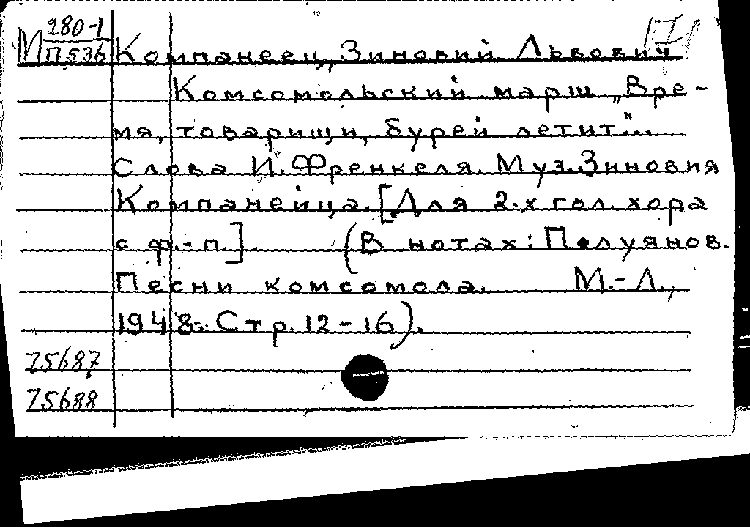 М 280-1
П536 Компанеец, Зиновий Львович
Комсомольский марш „Вре-
мя, товарищи, бурей летит"...
Слова И. Френкеля. Муз. Зиновия
Компанейца. [Для 2-х гол. хора
с ф.-п.]. (В нотах: Полуянов.
Песни комсомола. М.-Л.,
1948. Стр. 12-16).
75687
75688